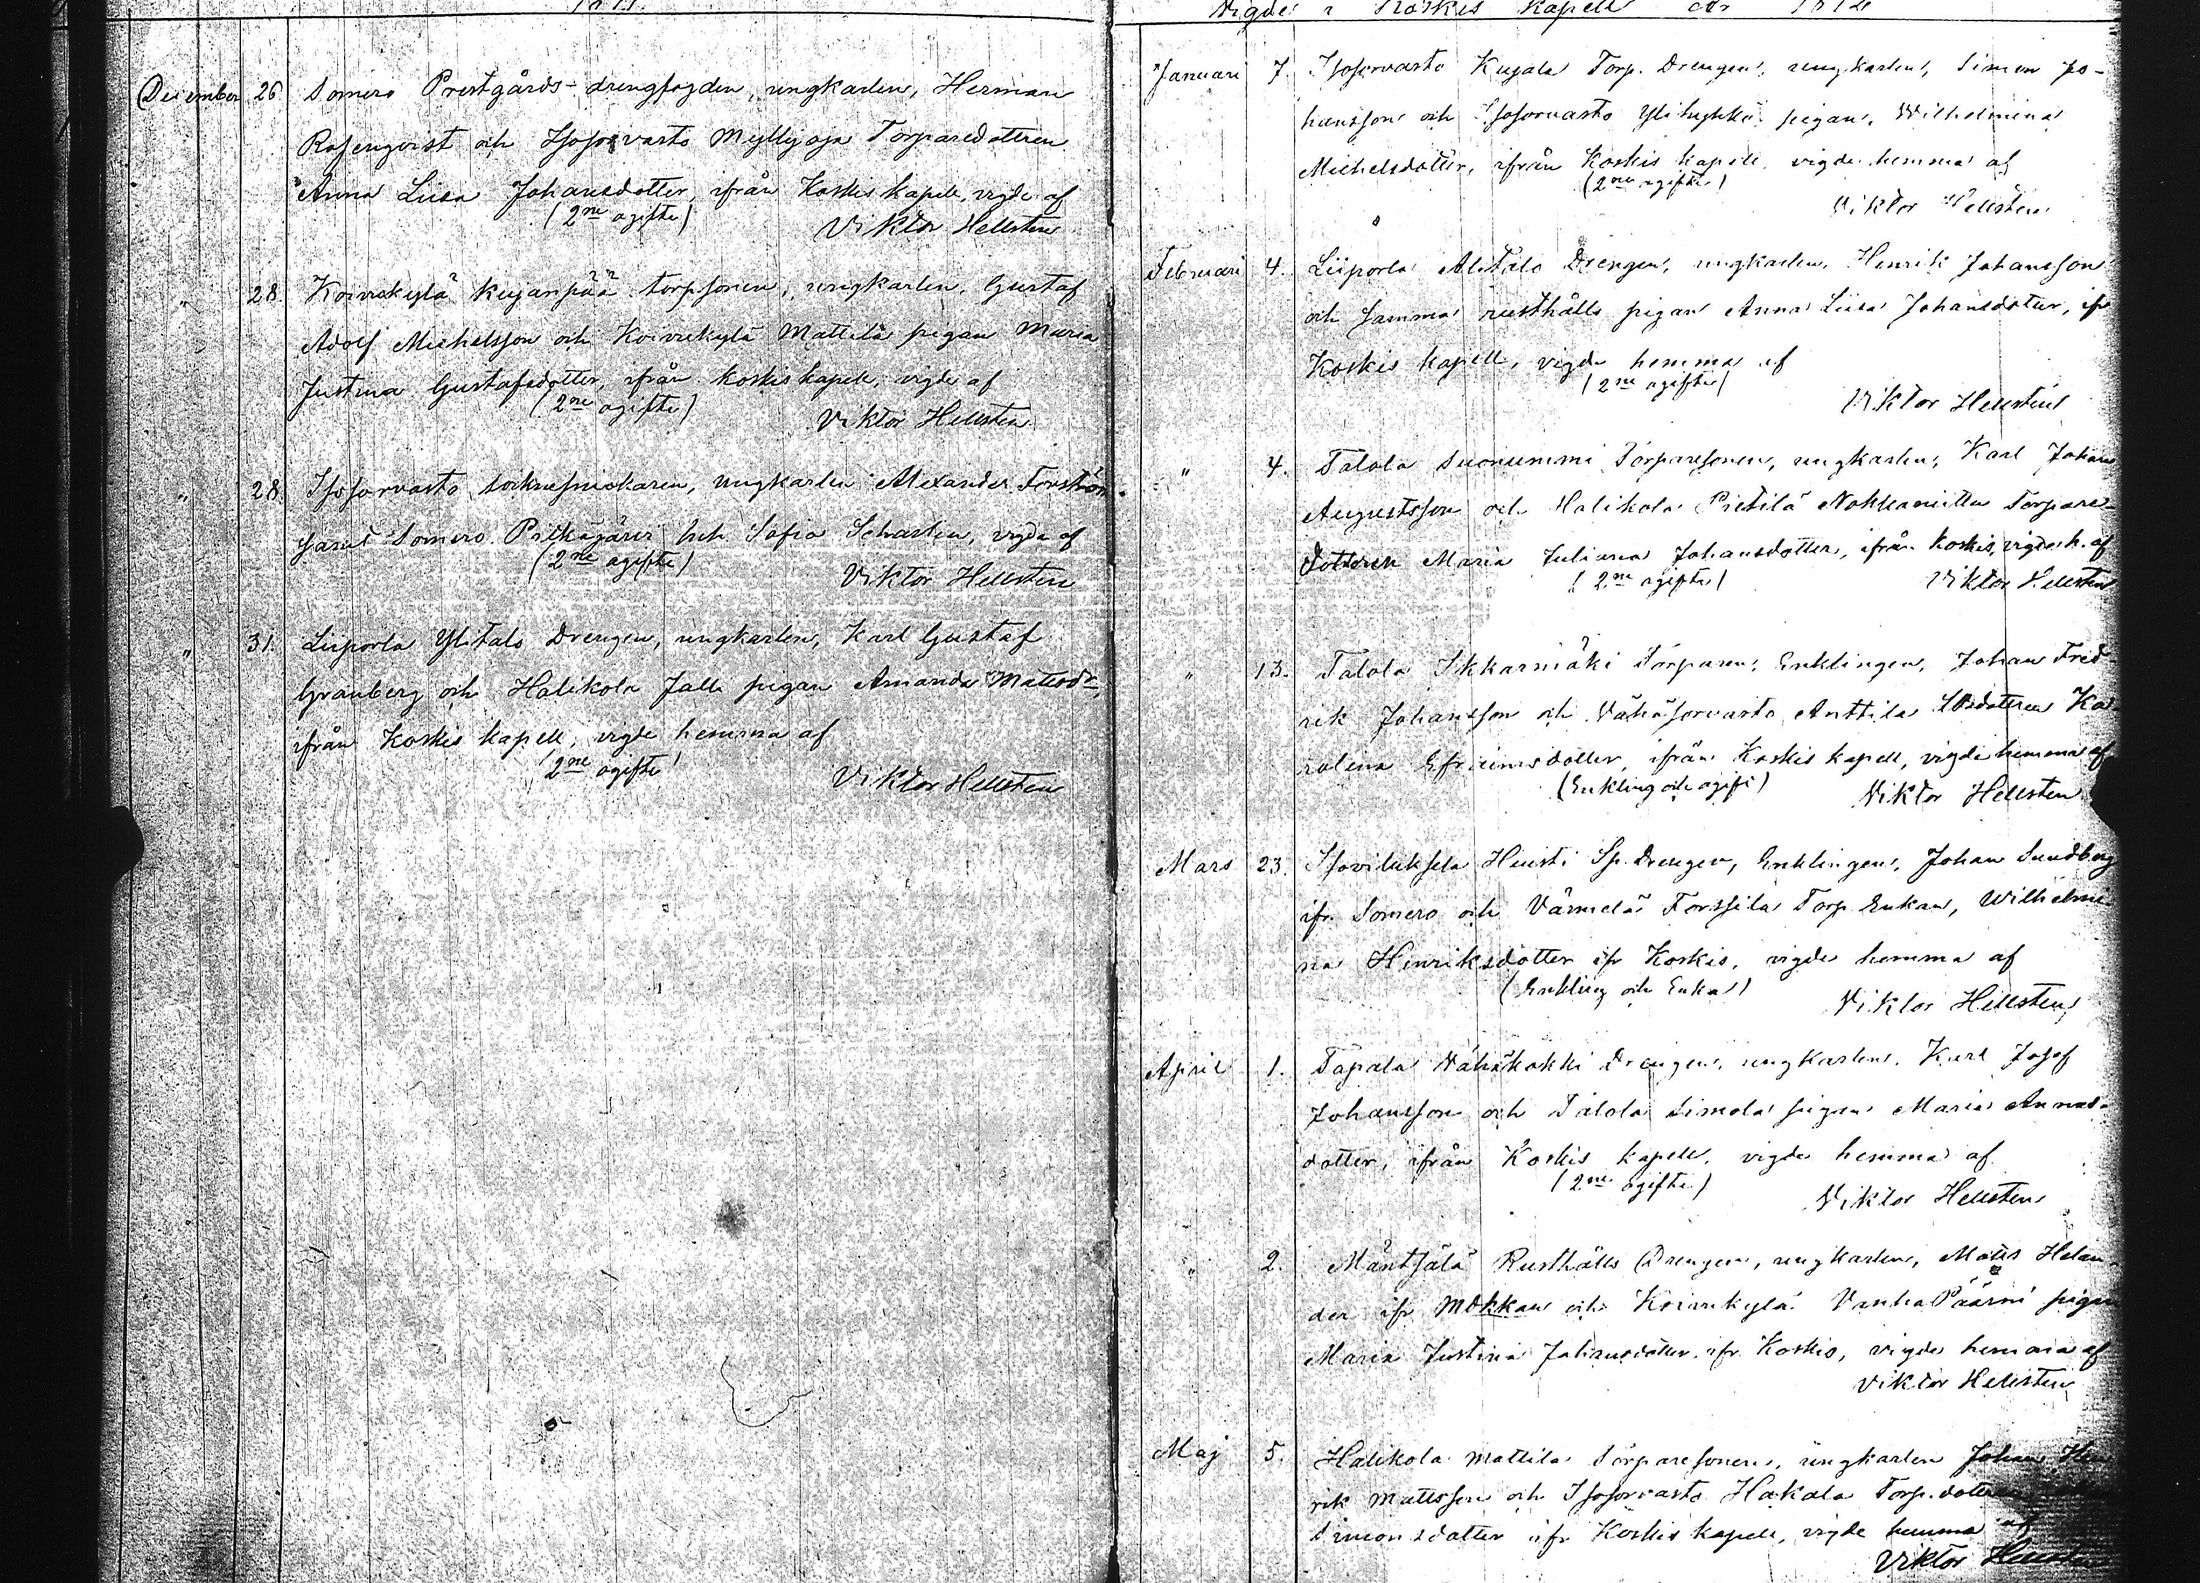 1871.
December 26 Somero Prestgårds-drengfogden, ungkarlen, Herman
Rosenqvist och Isosorvasto Myllyoja Torparedottren
Anna Liisa Johansdotter, ifrån Koskis kapell, vigde af
(2ne ogifte)
Viktor Hellsten
" 28 Koivukylä Kujanpää torpsonen, ungkarlen, Gustaf
Adolf Michelsson och Koivukylä Mattila pigan Maria
Justina Gustafsdotter, ifrån Koskis kapell, vigde af
(2ne ogifte)
Viktor Hellsten
" 28 Isosorvasto socknesnickaren, ungkarlen Alexander Forström
samt Somero Pitkäjärvi Sofia vigde af
(2ne ogifte)
Viktor Hellsten
" 31. Liiporla Ylitalo Drengen, ungkarlen, Karl Gustaf
Granberg och Halikola Jalli pigan Amanda Matsdr,
ifrån Koskis kapell, vigde hemma af
(2ne ogifte)
Viktor Hellsten
Vigde i Koskis Kapell år 1872
Januari 7. Isosorvasto Kujala Torp. Drengen, ungkarlen, Simon Jo-
hansson och Isosorvasto pigan, Wilhelmina
Michelsdotter, ifrån Koskis kapell, vigde hemma af
(2ne ogifte)
Viktor Hellsten
Februari 4. Liiporla Alitalo Drengen, ungkarlen, Henrik Johansson
och samma rusthålls pigan Anna Liisa Johansdotter, ifr
Koskis kapell, vigde hemma af
(2ne ogifte)
Viktor Hellsten
" 4. Talola Suonummi Torparesonen, ungkarlen, Karl Johan
Augustsson och Halikola Pietilä Torpare-
dottren Maria Juliana Johansdotter, ifrån Koskis, vigde h. af
(2ne ogifte)
Viktor Hellsten
" 13. Talola Ikkarmäki Torparen, Enklingen, Johan Fred-
rik Johansson och Vähäsorvasto Anttila Ka-
rolina Efraimsdotter, ifrån Koskis kapell, vigde hemma af
(Enkling och ogift)
Viktor Hellsten
Mars 23. Isoviluksela Heusti Sp. Drengen, Enklingen, Johan Sundberg
ifr. Somero och Värmelä Forssila Torp. Enkan, Wilhelmi-
na Henriksdotter ifr Koskis, vigde hemma af
(Enkling och Enka)
Viktor Hellsten
April 1. Tapala Vähäkokki Drengen, ungkarlen, Karl Josef
Johansson och Talola Simola pigan Maria Annas-
dotter, ifrån Koskis kapell, vigde hemma af
(2ne ogifte)
Viktor Hellsten
" 2. Mäntsälä Rusthålls Drengen, ungkarlen, Matts Helan-
der ifr och Koivukylä VanhaPäärni pigan
Maria Justina Johansdotter ifr Koskis, vigde hemma af
Viktor Hellsten
Maj 5. Halikola Mattila Torparesonen, ungkarlen Johan Hen-
rik Mattsson och Isosorvasto Hakala Torp. dottren
Simonsdotter ifr Koskis kapell, vigde hemma af
Viktor Hellsten